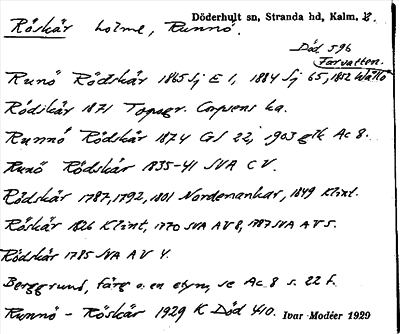 Röskär holme, Runnö. Döderhult sn, Stranda hd, Kalm. l.
Död 596
Farvatten.
Runö Rödskär 1865 Sj E 1, 1884 Sj 65, 1852 Wållö
Rödskär 1871 Topogr. Corpsens ka.
Runnö Rödskär 1874 GS 22, 1903 gtk Ac 8.
Runö Rödskär 1835-41 SVA C V.
Rödskär 1787, 1792, 1801 Nordenankar, 1849 Klint.
Röskär 1826 Klint, 1770 SVA AV 8, 1787 SVA AV 5.
Rödskär 1785 SVA AV 4.
Berggrund, färg o. en etym, se Ac 8 s. 22 f.
Runnö - Röskär 1929 K Död 410. Ivar Modéer 1929